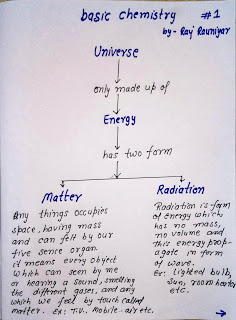 basic chemistry #1
by- Raj Rauniyar
Universe
only made up of
Energy
has two form
Matter
Any things occupies
space, having mass
and can felt by our
five sence organ.
it means every object
which can seen by me
or hearing a sound, smelling
the different gases, and any
which we feel by touch called
matter. ex: T.V. Mobile - air etc.
Radiation
Radiation is form
of Energy which
has no mass,
no volume and
this energy prop-
agate in form
of wave.
Ex: Lighted bulb,
Sun, room heater
etc.